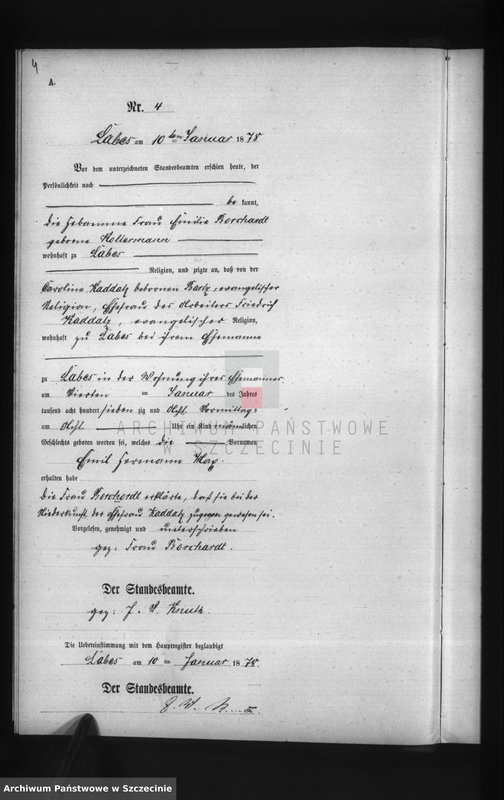 4
A.
Nr. 4
Labes am 10ten Januar 1878
Vor dem unterzeichneten Standesbeamten erschien heute, der
Persönlichkeit nach
be kannt,
die Hebamme Frau Emilie Borchardt
geborne Hollermann
wohnhaft zu Labes
Religion, und zeigte an, daß von der
Caroline Kaddatz gebornen Bartz, evangelischer
Religion, Ehefrau des Arbeiters Friedrich
Kaddatz, evangelischer Religion,
wohnhaft zu Labes bei ihrem Ehemanne
zu Labes in der Wohnung ihres Ehemannes
am vierten Januar des Jahres
tausend acht hundert siebenzig und acht Vormittags
um acht Uhr ein Kind männlichen
Geschlechts geboren worden sei, welches die Vornamen
Emil Hermann Max
erhalten habe
Die Frau Borchardt erklärte, daß sie bei der
Niederkunft der Ehefrau Kaddatz zugegen gewesen sei.
Vorgelesen, genehmigt und unterschrieben
gez: Frau Borchardt.
Der Standesbeamte.
gez: J. W.
Die Uebereinstimmung mit dem Hauptregister beglaubigt
Labes am 10 ten Januar 1878.
Der Standesbeamte.
ARCHIWUM PAŃSTWOWE
W SZCZECINIE
Archiwum Państwowe w Szczecinie